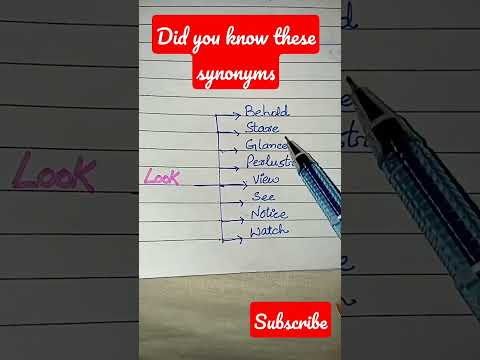 Did you know these
synonyms
Behold
Stare
Glance
Perlustr
Look Look View
See
Notice
Watch
Subscribe